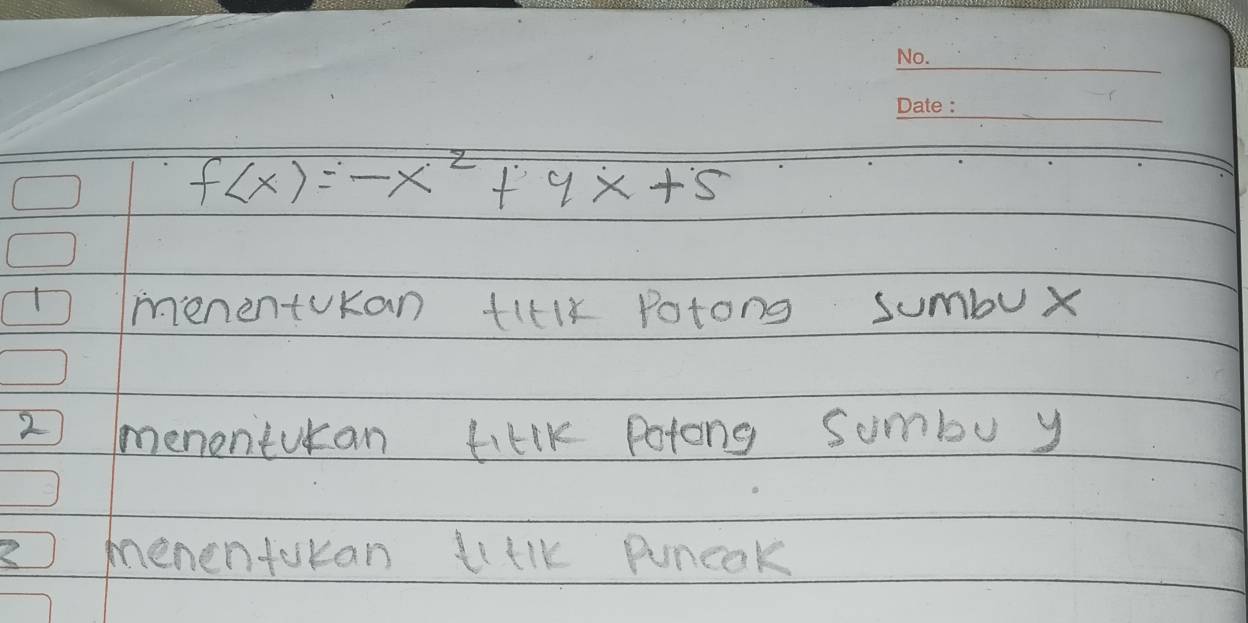 No.
Date :
f(x) = -x² + 4x + 5
1 menentukan titik Potong sumbu x
2 menentukan titik potong Sumbu y
3 menentukan titik Puncak